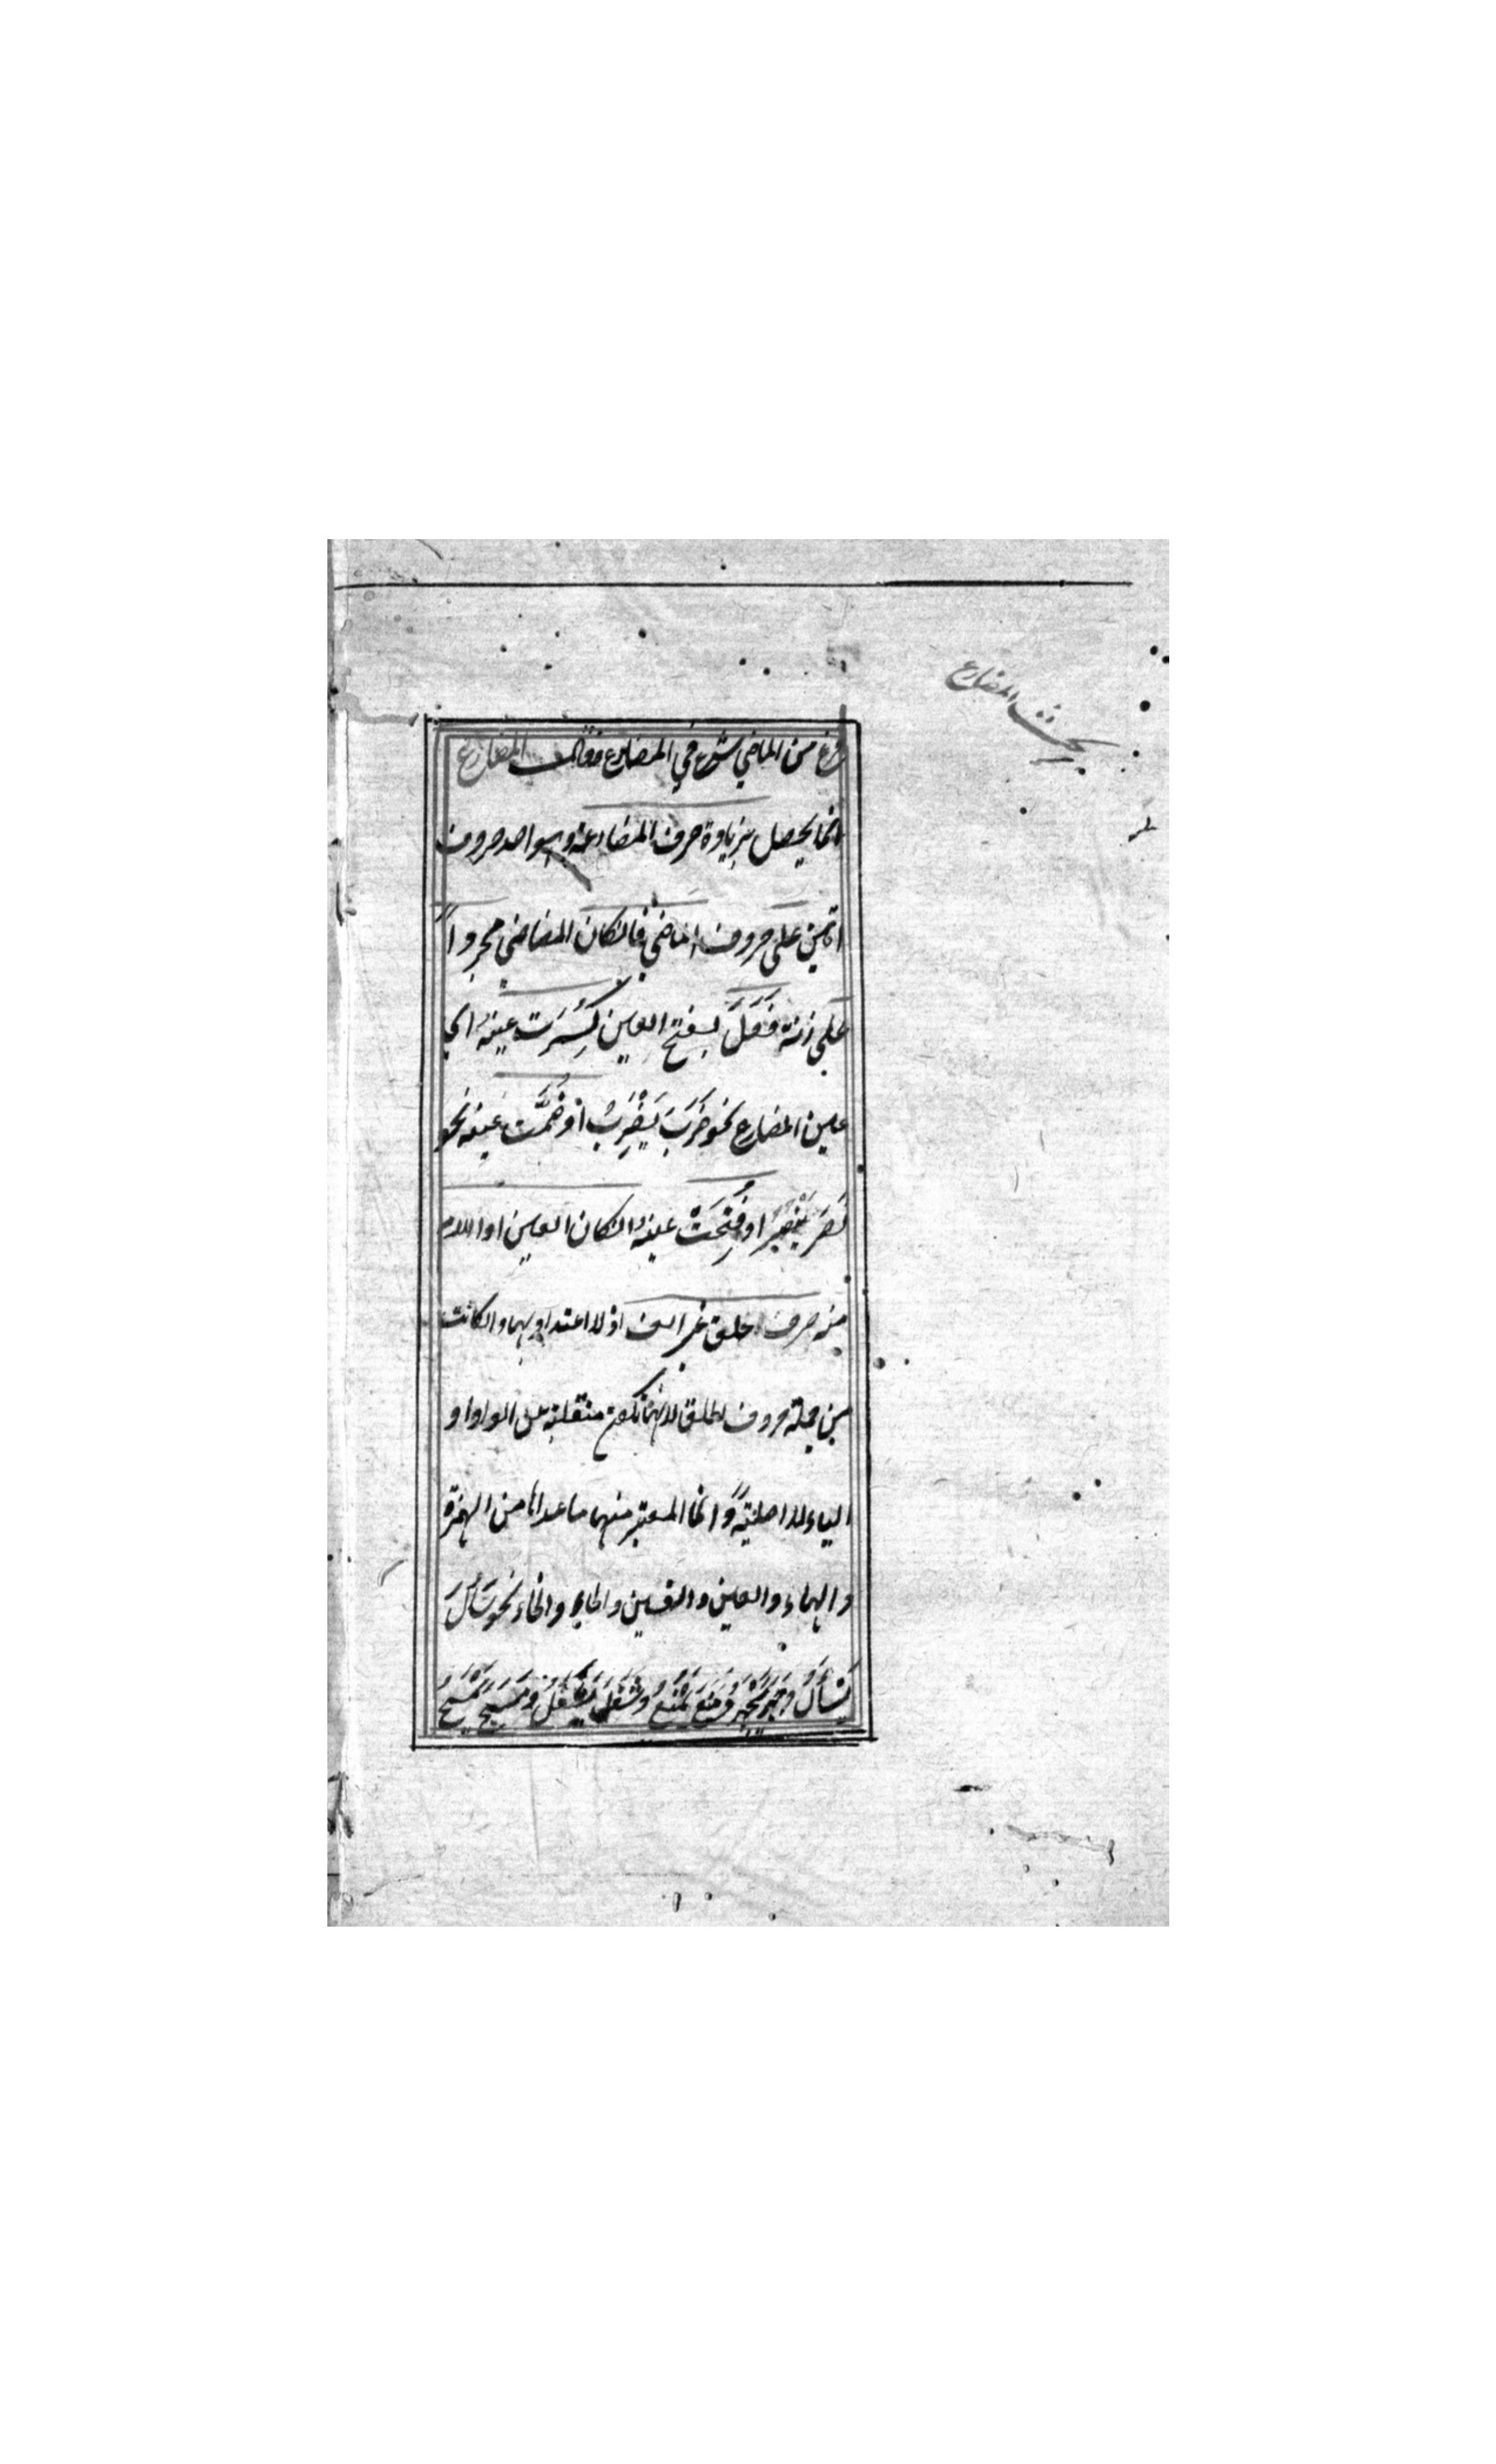 بحث المضارع
فرغ من الماضي شرع في المضارع فقال المضارع
انما يحصل بزيادة حرف المضارعة وهو احد حروف
اتين على حروف الماضي فانكان المضاضي مجردا
على زنة فَعَلَ بفتح العين كُسِرَت عينه اى
عين المضارع نحو ضَرَبَ يَضْرِبُ اوضُمَّت عينه نحو
نَصَرَ يَنْصُرُ اوفُتِحَتْ عينه انكان العين اواللام
منه حرف حلق غير الف اذ لا اعتداد بها وانكانت
من جملة حروف الحلق لانها تكون منقلبة عن الواو او
الياء لا اصلية وانما المعتبر منها ما عداها من الهمزة
والهاء والعين والغين والحاء والخاء نحو سَأَلَ
يَسْأَلُ وجَهَرَ يَجْهَرُ ومَنَعَ يَمْنَعُ وشَغَلَ يَشْغَلُ ومَسَحَ يَمْسَحُ